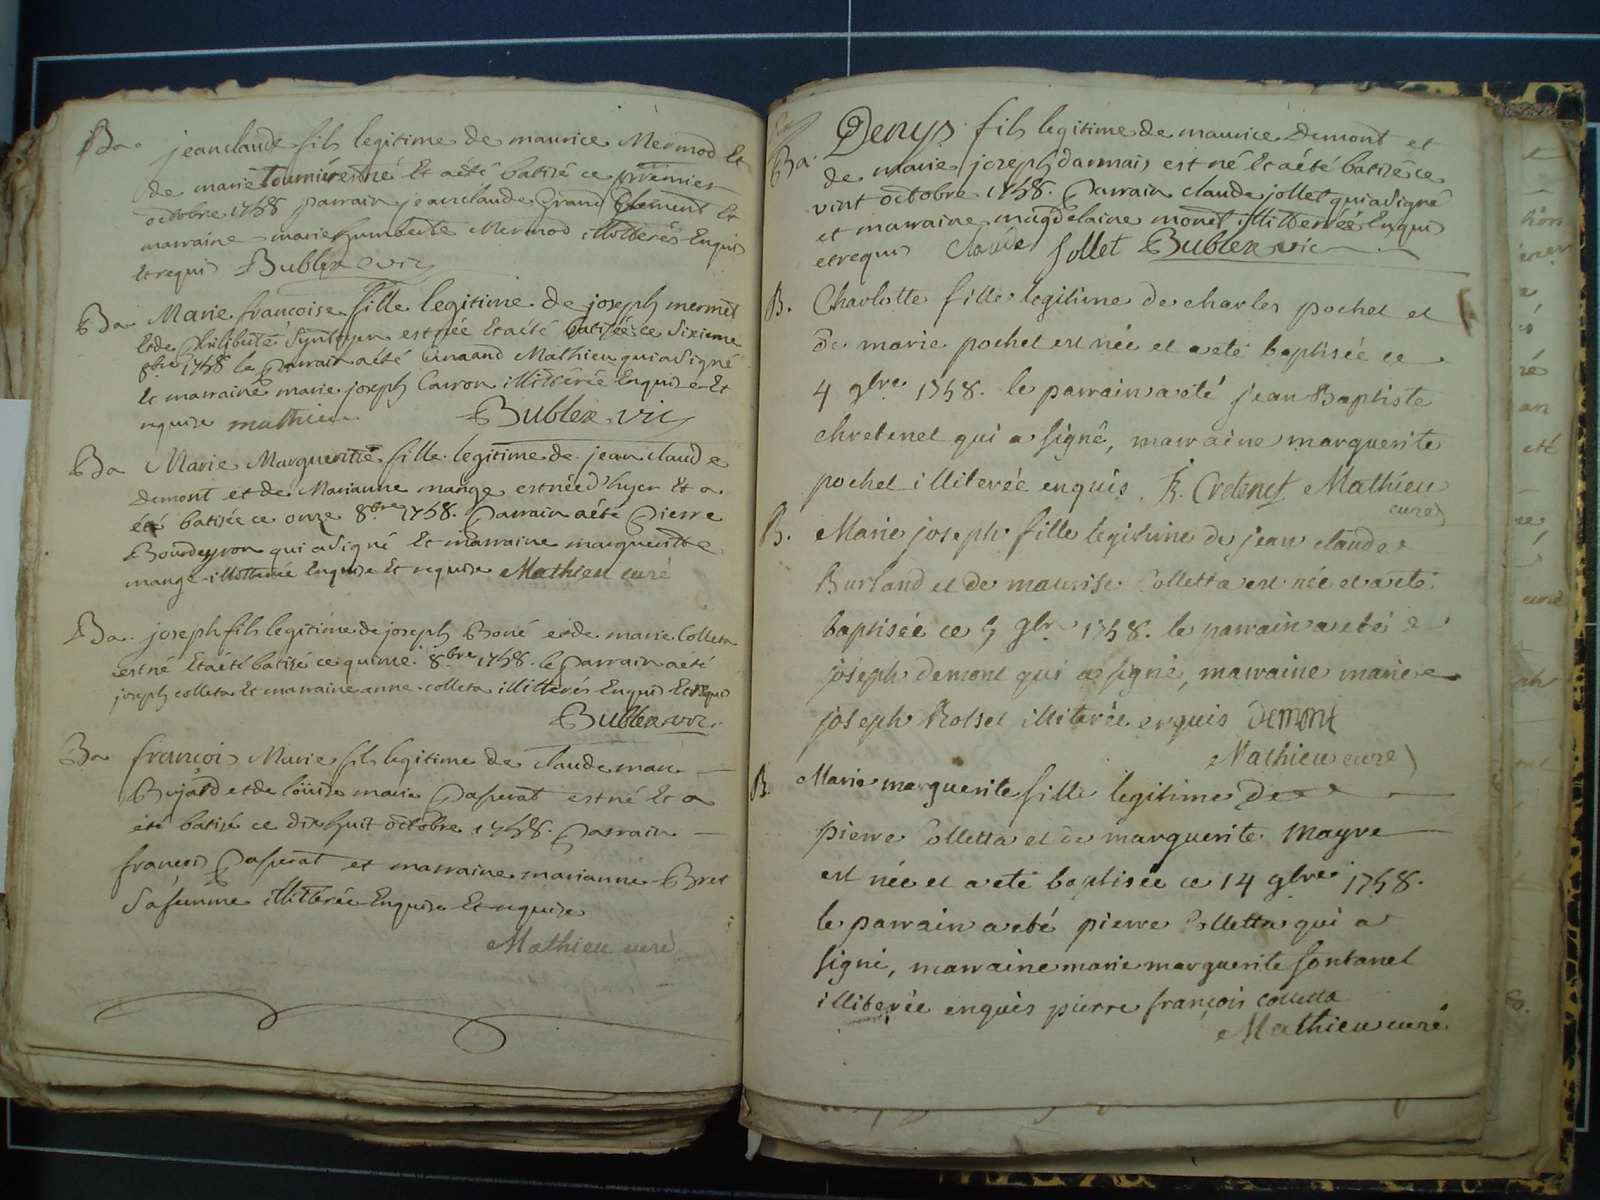 Ba. jean claude fils legitime de maurice Mermod Et
de marie est né Et aété batisé ce premier
octobre 1758 parrain jean claude Grand Clement Et
marraine marie humberte Mermod illitterés Enquis
Et requis Bublex vic
Ba Marie francoise fille legitime de joseph mermet
Et de philiberte est née Et aété batisée ce sixieme
8bre 1758 le parrain aété Mathieu qui a signé
Et marraine marie joseph Carron illitterée Enquise Et
requise mathieu Bublex vic
Ba Marie Marguerite fille legitime de jean claude
demont et de Marianne mange est née d'hyer Et a
été batisée ce onze 8bre 1758. parrain aété pierre
Bourdeyron qui a signé Et marraine marguerite
mange illitterée Enquise Et requise Mathieu curé
Ba. joseph fils legitime de joseph Boné et de marie Colleta
est né Et aété batisé ce quinze 8bre 1758. le parrain aété
joseph colleta Et marraine anne colleta illitterés Enquis Et requis
Bublex vic.
Ba françois Marie fils legitime de claude mari
Bujard et de loüise marie pasperat est né Et a
été batisé ce dix huit octobre 1758. parrain
françois pasperat et marraine marianne Bret
sa femme illitterée Enquise Et requise
Mathieu curé
Ba. Denys fils legitime de maurice Demont et
de marie joseph darmais est né Et aété batisé ce
vint octobre 1758. parrain claude jollet qui a signé
et marraine magdelaine monet illitterée Enquis
et requis Claude Jollet Bublex vic
B. Charlotte fille legitime de charles pochet et
de marie pochet est née et a eté baptisée ce
4 9bre 1758. le parrain a eté jean Baptiste
chretenet qui a signé, marraine marguerite
pochet illiterée enquis. Cretenet Mathieu
curé
B. Marie joseph fille legitime de jean claude
Burland et de maurise Colletta est née et a eté
baptisée ce 5 9bre 1758. le parrain a eté
joseph demont qui a signé, marraine marie
joseph Rosset illiterée enquis Demont
Mathieu curé
B. Marie marguerite fille legitime de
pierre Colletta et de marguerite Mayre
est née et a eté baptisée ce 14 9bre 1758.
le parrain a eté pierre Colletta qui a
signé, marraine marie marguerite fontanel
illiterée enquis pierre françois colletta
Mathieu curé